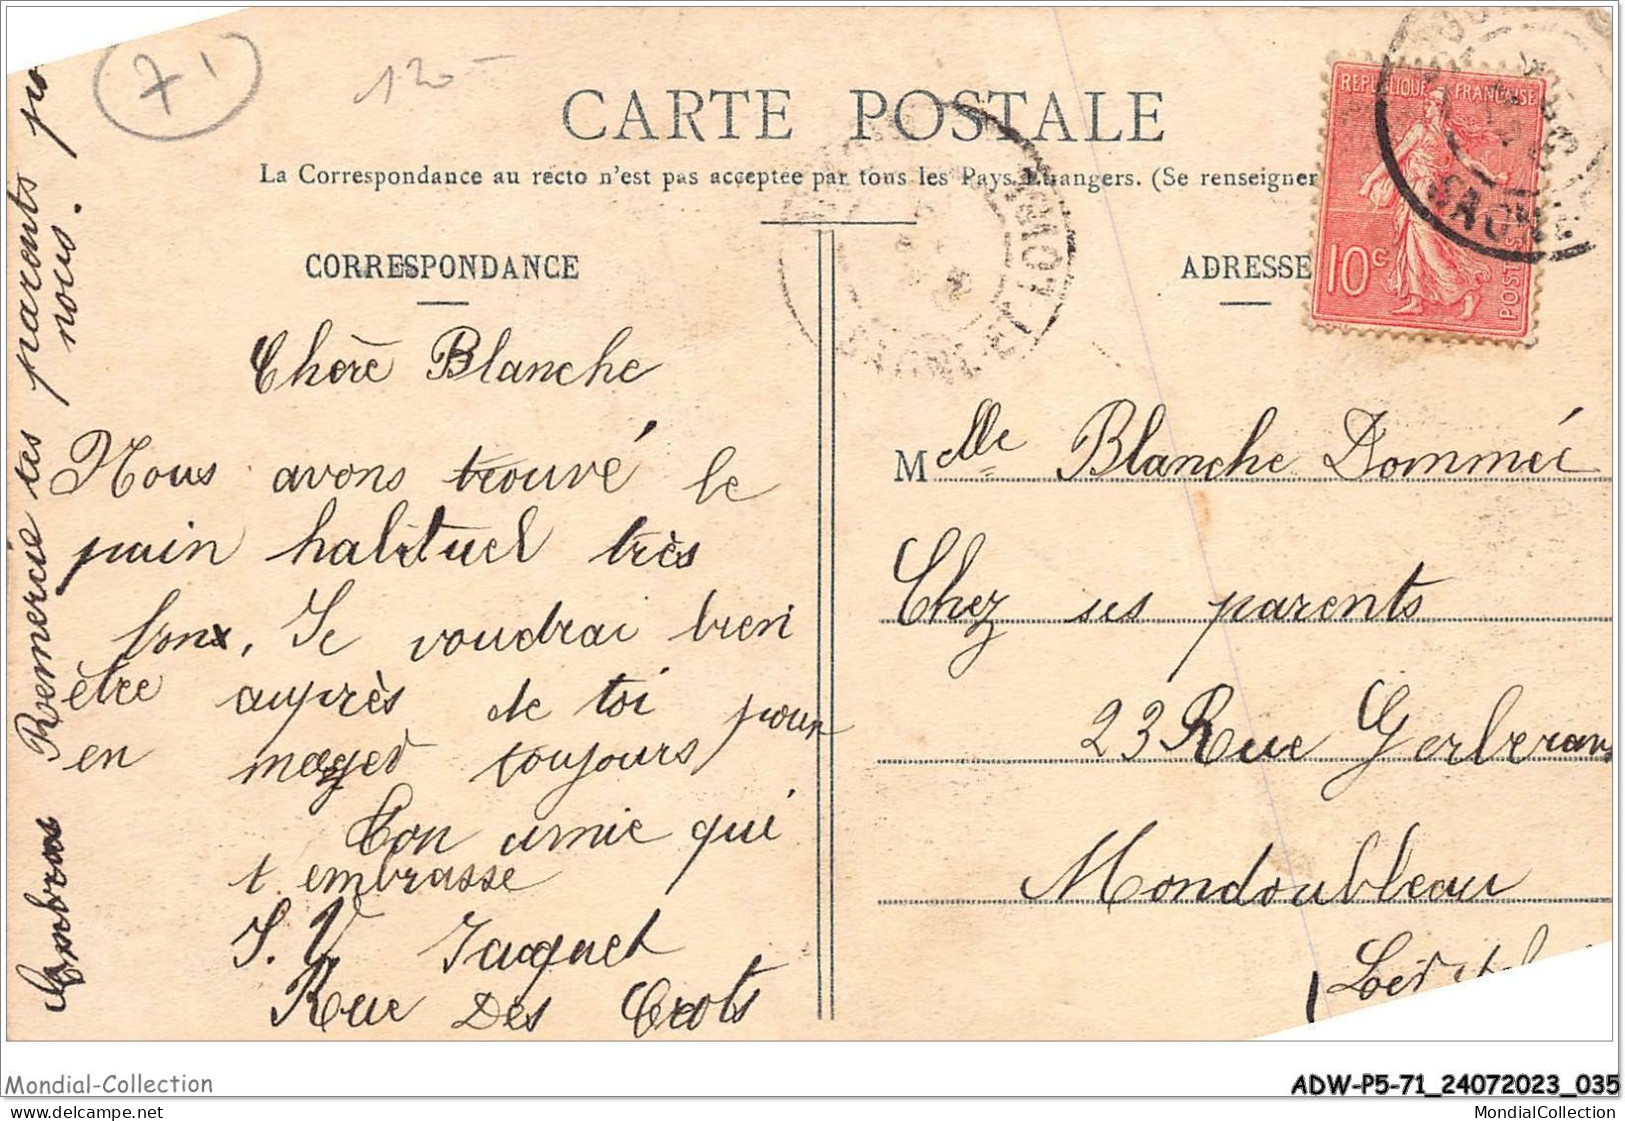 71
120-
CARTE POSTALE
La Correspondance au recto n'est pas acceptée par tous les Pays Etrangers. (Se renseigner
REPUBLIQUE FRANÇAISE
10c
POSTES
SAONE
CORRESPONDANCE
ADRESSE
Chère Blanche
Nous avons trouvé le
pain habituel très
bon, Je voudrai bien
être auprès de toi pour
en manger toujours
Ton amie qui
t embrasse
S. V Jacquet
Rue Des Crots
Remercie tes parents
nous.
Melle Blanche Dommée
Chez ses parents
23 Rue
Mondoubleau
Mondial-Collection
ADW-P5-71_24072023_035
Mondial-Collection
MondialCollection